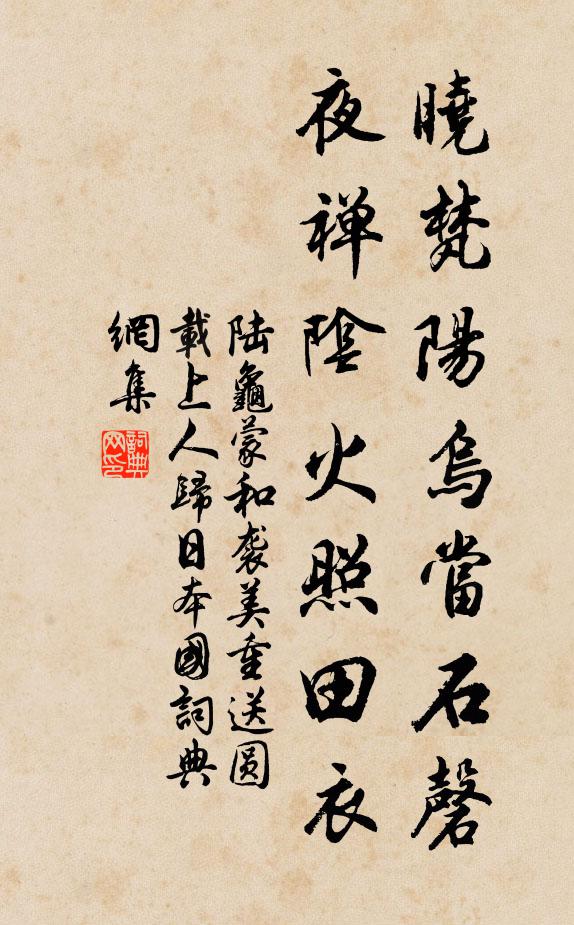 曉梵陽烏當石磬
夜禅陰火照田衣
陆龜蒙和袭美重送圆
載上人歸日本國詞典
網集
詞典
网印